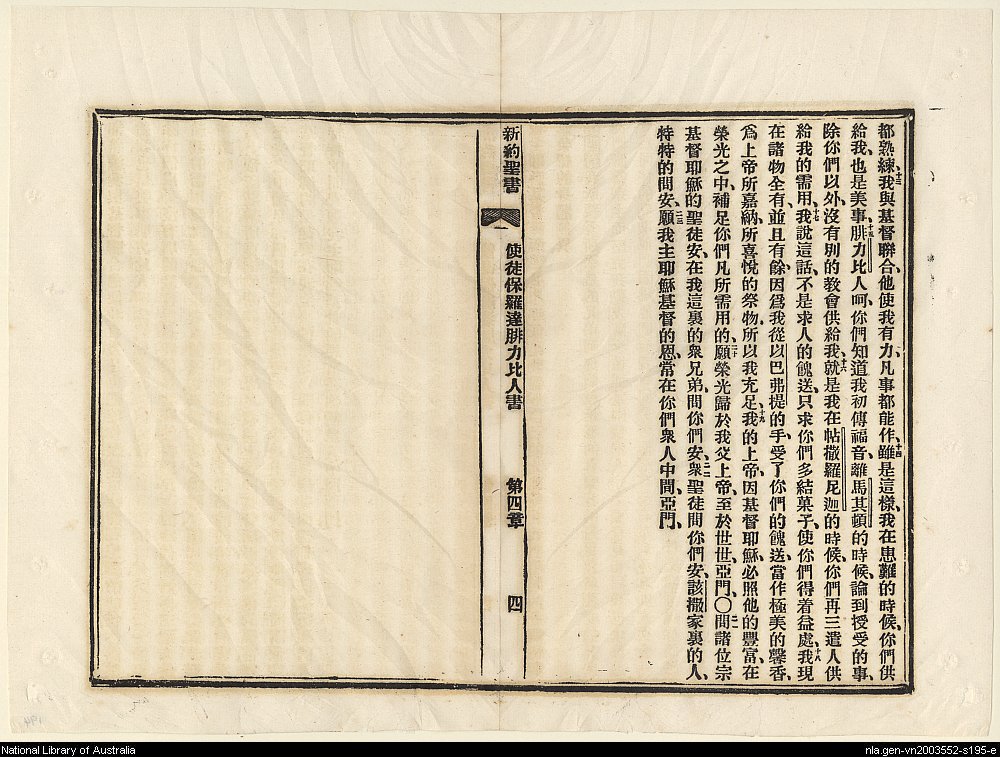 都熟練、十三我與基督聯合、他使我有力、凡事都能作、十四雖是這樣、我在患難的時候、你們供
給我、也是美事、十五腓力比人呵、你們知道我初傳福音、離馬其頓的時候、論到授受的事、
除你們以外、沒有別的教會供給我、十六就是我在帖撒羅尼迦的時候、你們再三遣人供
給我的需用、十七我說這話、不是求人的餽送、只求你們多結菓子、使你們得着益處、十八我現
在諸物全有、並且有餘、因爲我從以巴弗提的手、受了你們的餽送、當作極美的馨香、
爲上帝所嘉納、所喜悅的祭物、所以我充足、十九我的上帝、因基督耶穌、必照他的豐富、在
榮光之中、補足你們凡所需用的、二十願榮光歸於我父上帝、至於世世、亞門、〇二一問諸位宗
基督耶穌的聖徒安、在我這裏的衆兄弟、問你們安、二二衆聖徒問你們安、該撒家裏的人、
特特的問安、二三願我主耶穌基督的恩、常在你們衆人中間、亞門、
新約聖書 使徒保羅達腓力比人書 第四章 四
National Library of Australia
nla.gen-vn2003552-s195-e